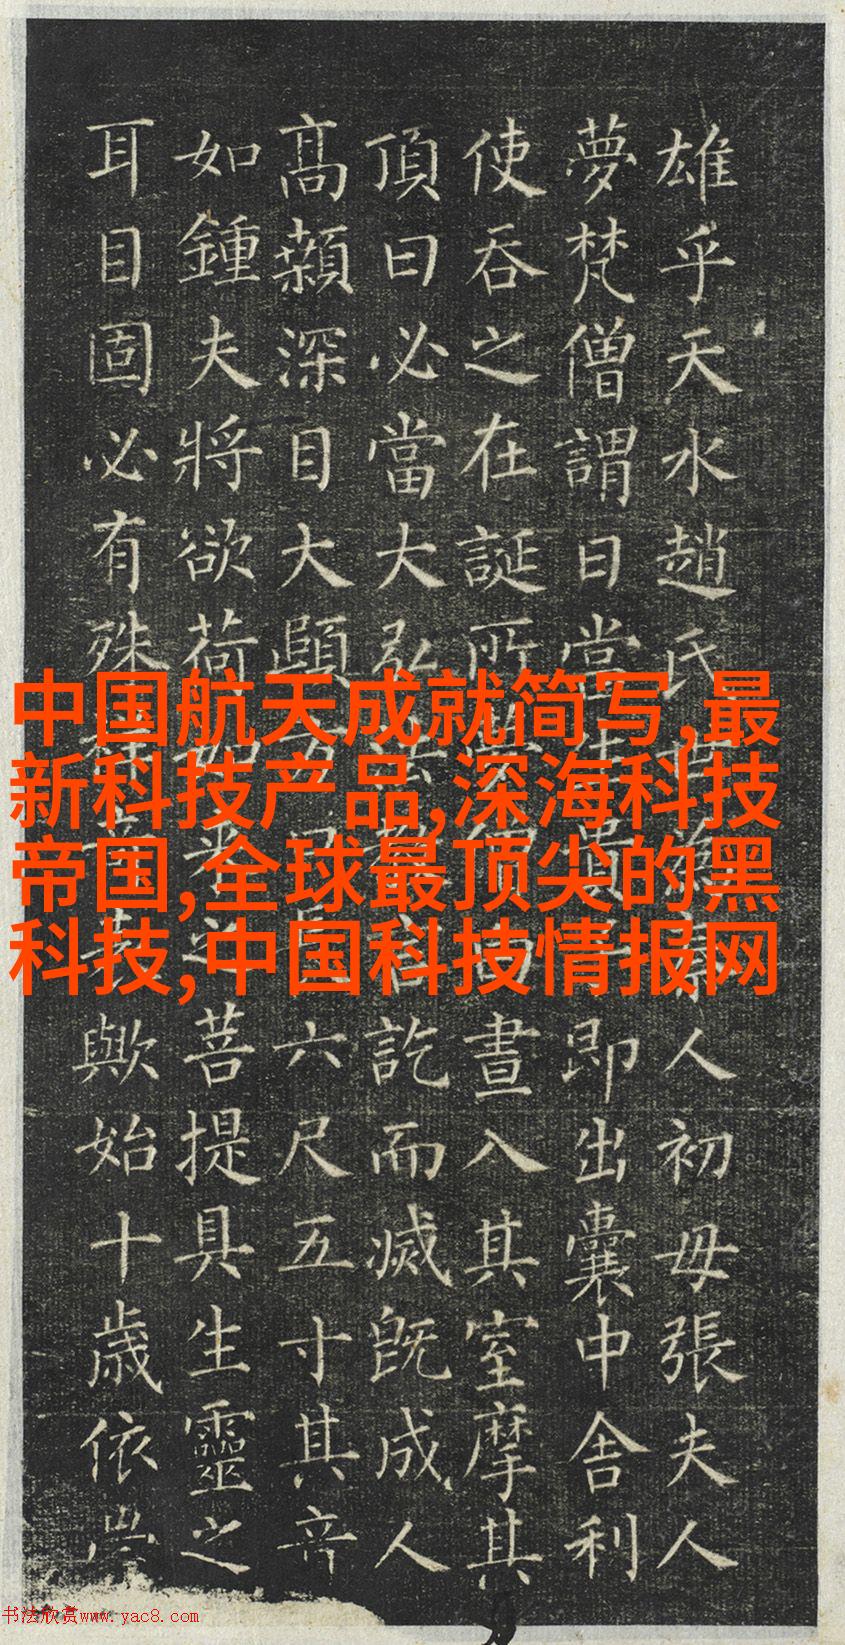 雄乎天水趙氏世為人初母張夫人
夢梵僧謂曰當生貴即出囊中舍利
使吞之在誕所夢僧白晝入其室摩其
頂曰必當大弘法教言訖而滅既成人
高顙深目大頤方口長六尺五寸其音
如鍾夫將欲荷如來之菩提具生靈之
耳目固必有殊祥奇表歟始十歲依
中国航天成就简写,最
新科技产品,深海科技
帝国,全球最顶尖的黑
科技,中国科技情报网
书法欣赏www.yac8.com